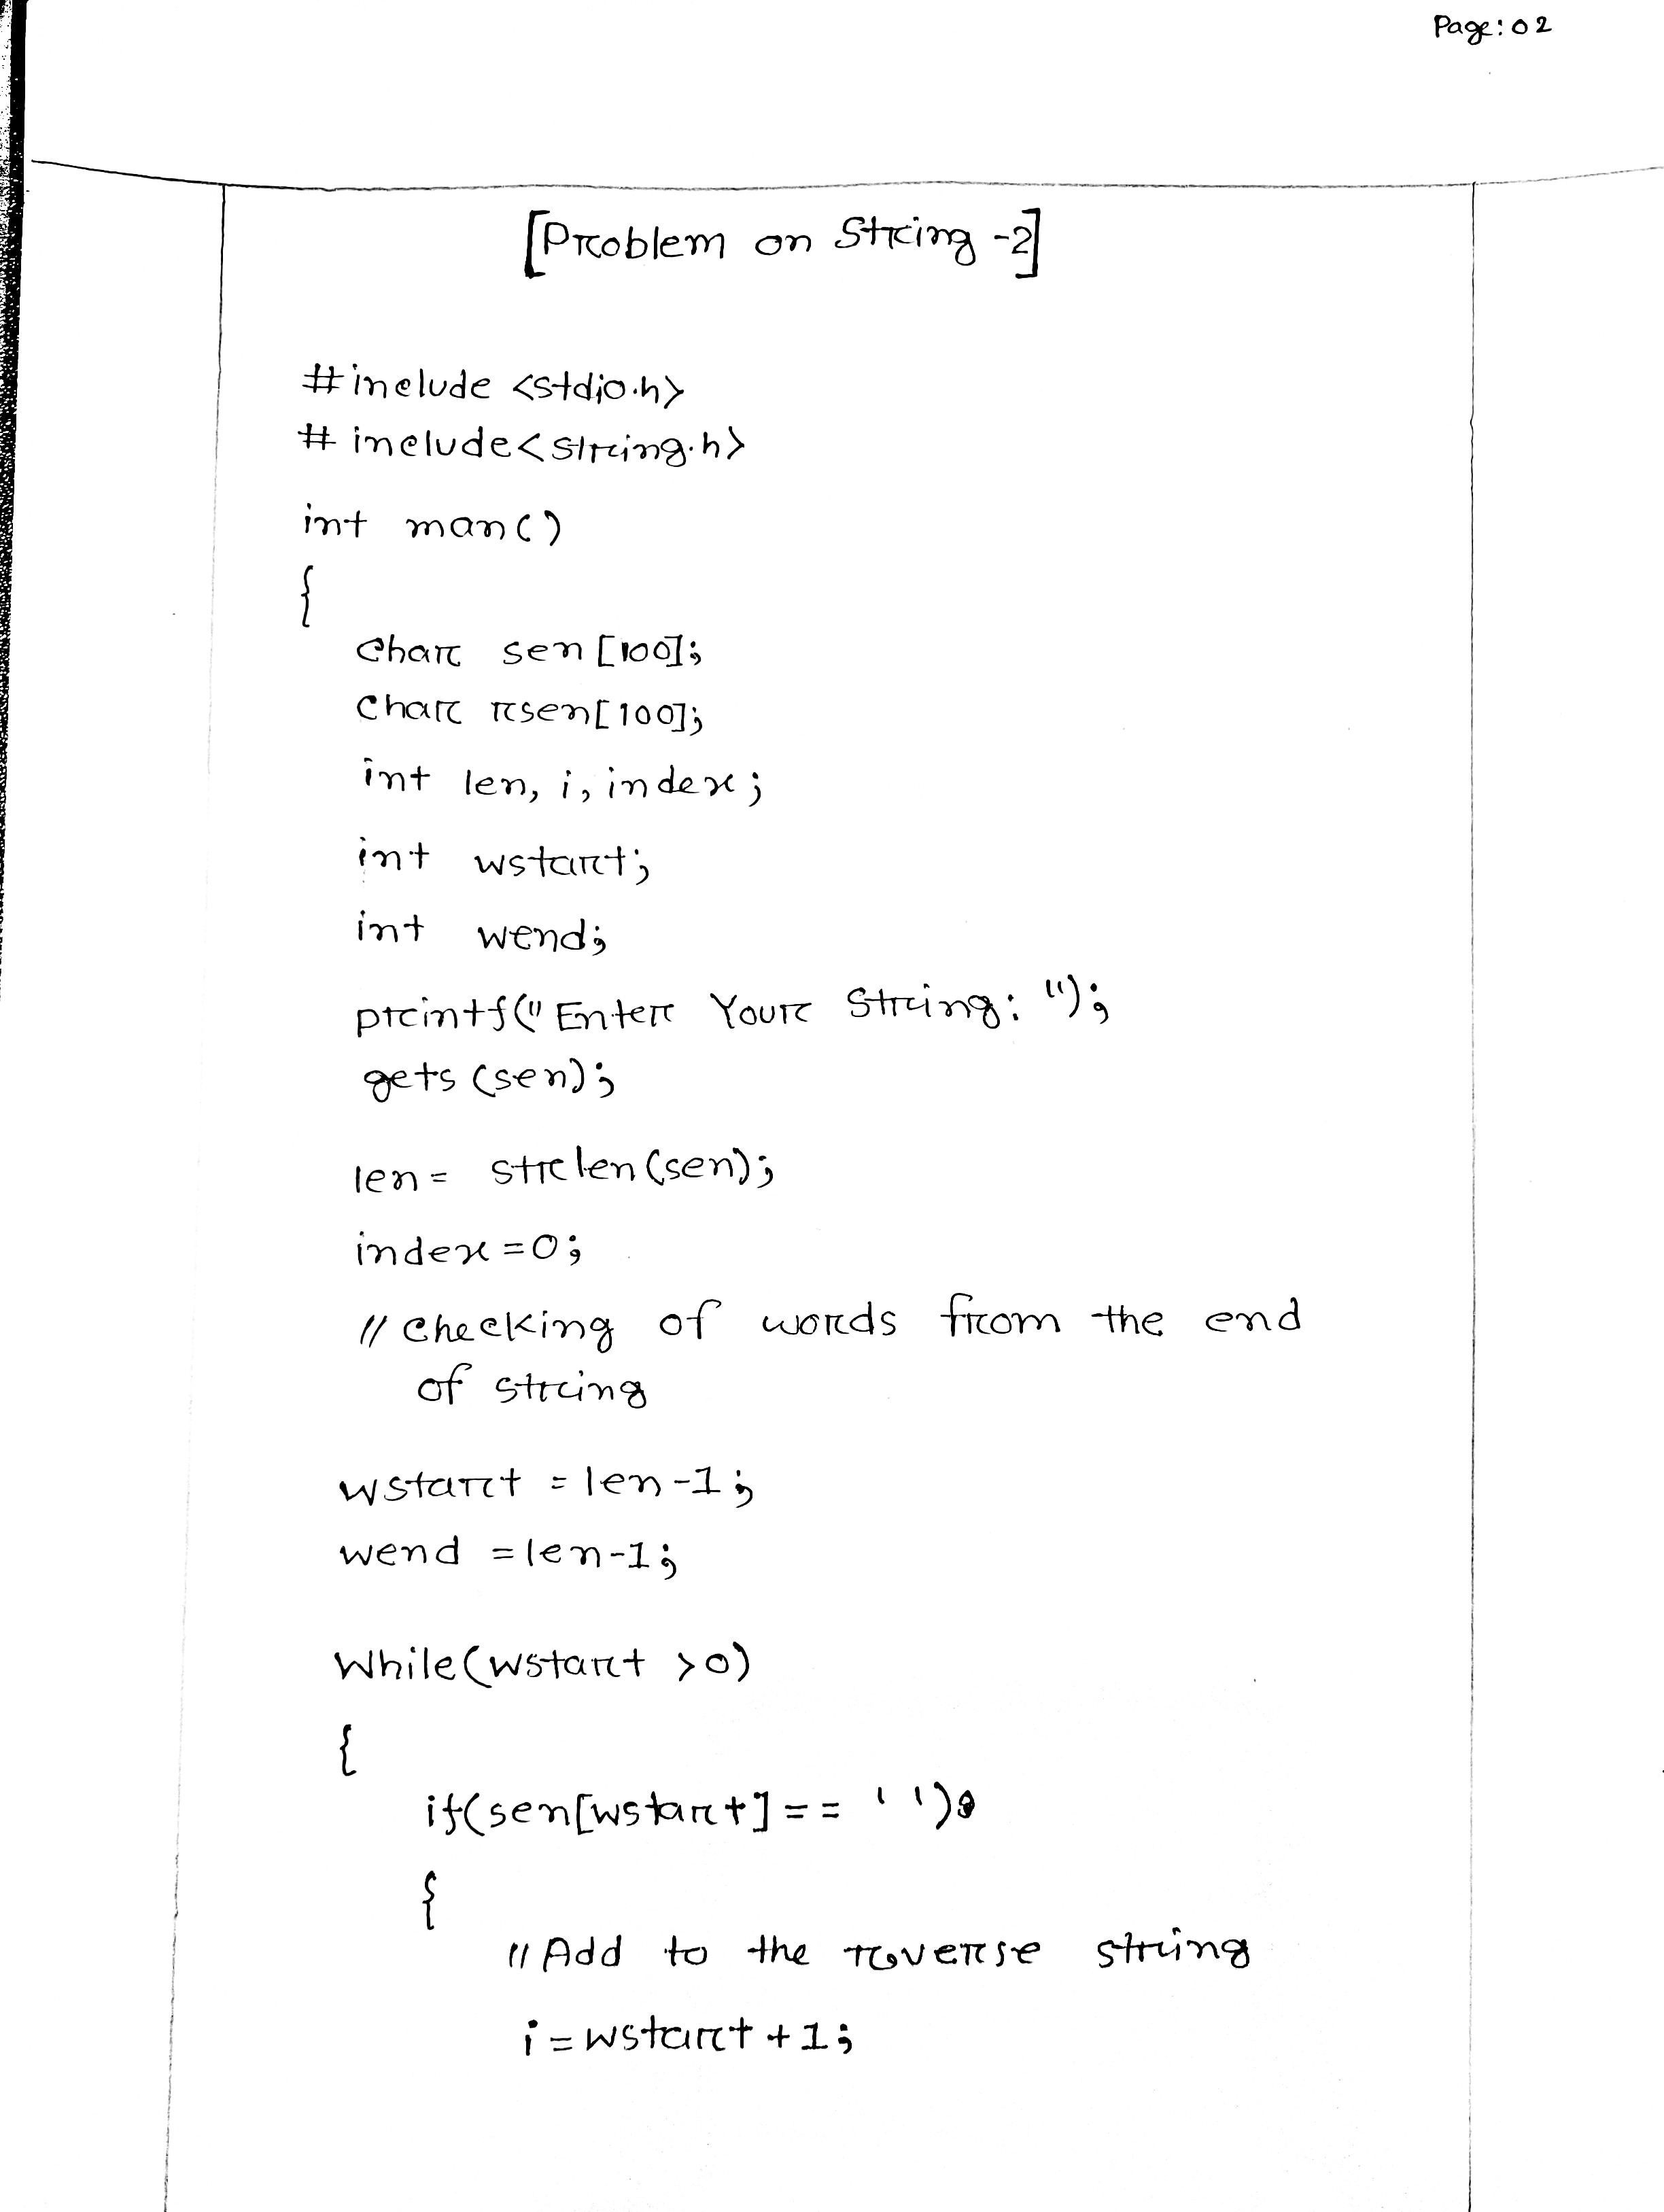 Page: 02
[Problem on String -2]
#include <stdio.h>
# include<string.h>
int man()
{
char sen [100];
char rsen[100];
int len, i, index;
int wstart;
int wend;
printf("Enter Your String: ");
gets (sen);
len = strlen (sen);
index =0;
// checking of words from the end
of string
wstart = len -1;
wend =len-1;
While(wstart >0)
{
if(sen[wstart] == ' ')
{
// Add to the roverse string
i = wstart +1;